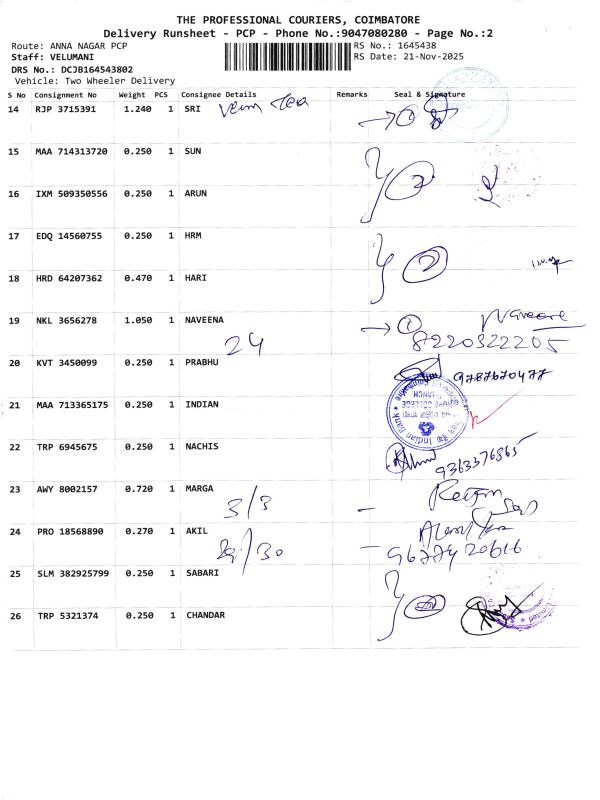 THE PROFESSIONAL COURIERS, COIMBATORE
Delivery Runsheet - PCP - Phone No.:9047080280 - Page No.:2
Route: ANNA NAGAR PCP RS No.: 1645438
Staff: VELUMANI RS Date: 21-Nov-2025
DRS No.: DCJB164543802
Vehicle: Two Wheeler Delivery
S No Consignment No Weight PCS Consignee Details Remarks Seal & Signature
14 RJP 3715391 1.240 1 SRI
15 MAA 714313720 0.250 1 SUN
16 IXM 509350556 0.250 1 ARUN
17 EDQ 14560755 0.250 1 HRM
18 HRD 64207362 0.470 1 HARI
19 NKL 3656278 1.050 1 NAVEENA
24 8220322205
20 KVT 3450099 0.250 1 PRABHU
9787670477
21 MAA 713365175 0.250 1 INDIAN
Indian Bank
22 TRP 6945675 0.250 1 NACHIS
9363376865
23 AWY 8002157 0.720 1 MARGA
3/3
24 PRO 18568890 0.270 1 AKIL
29/30 9677420616
25 SLM 382925799 0.250 1 SABARI
26 TRP 5321374 0.250 1 CHANDAR